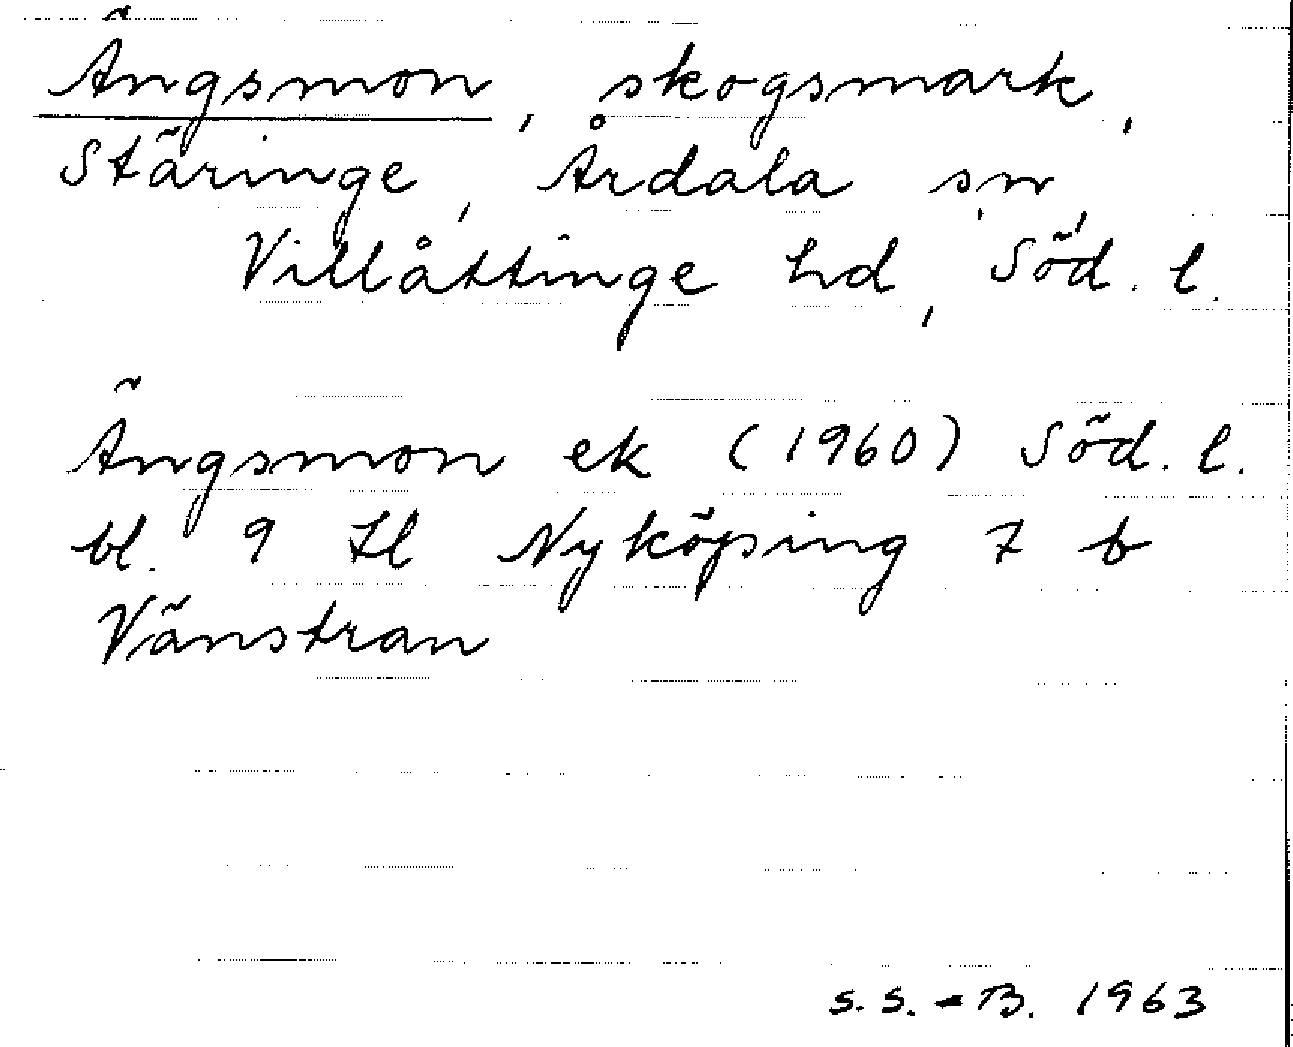 Ängsmon, skogsmark,
Stäringe, Årdala sn,
Villåttinge hd, Söd. l.
Ängsmon ek (1960) Söd. l.
bl. 9 Nyköping 7 b
Vänstran
S.S.-B. 1963